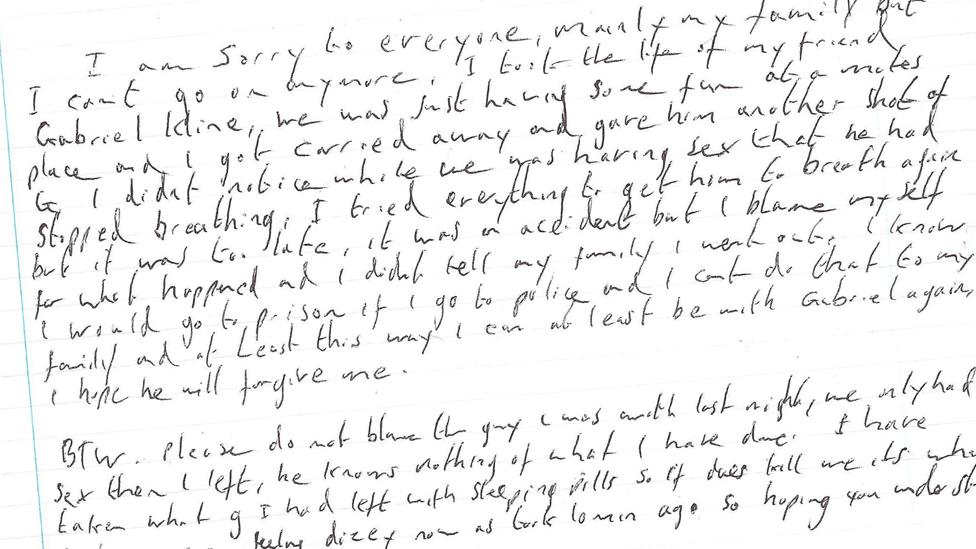 I am Sorry to everyone, mainly my family but
I cant go on anymore. I took the life of my friend
Gabriel kline, we was just having some fun at a mates
place and I got carried away and gave him another shot of
G, I didnt notice while we was having sex that he had
stopped breathing. I tried everything to get him to breath again
but it was to late, it was an accident but I blame my self
for what happened and I didnt tell my family I went out. I know
I would go to prison if I go to police and I cant do that to my
family and at least this way I can at least be with Gabriel again,
I hope he will forgive me.
BTW. Please do not blame the guy I was with last night, we only had
sex then I left, he knows nothing of what I have done. I have
taken what g I had left with sleeping pills so if it does kill me its
feeling dizzy now as took 10 min ago so hoping you